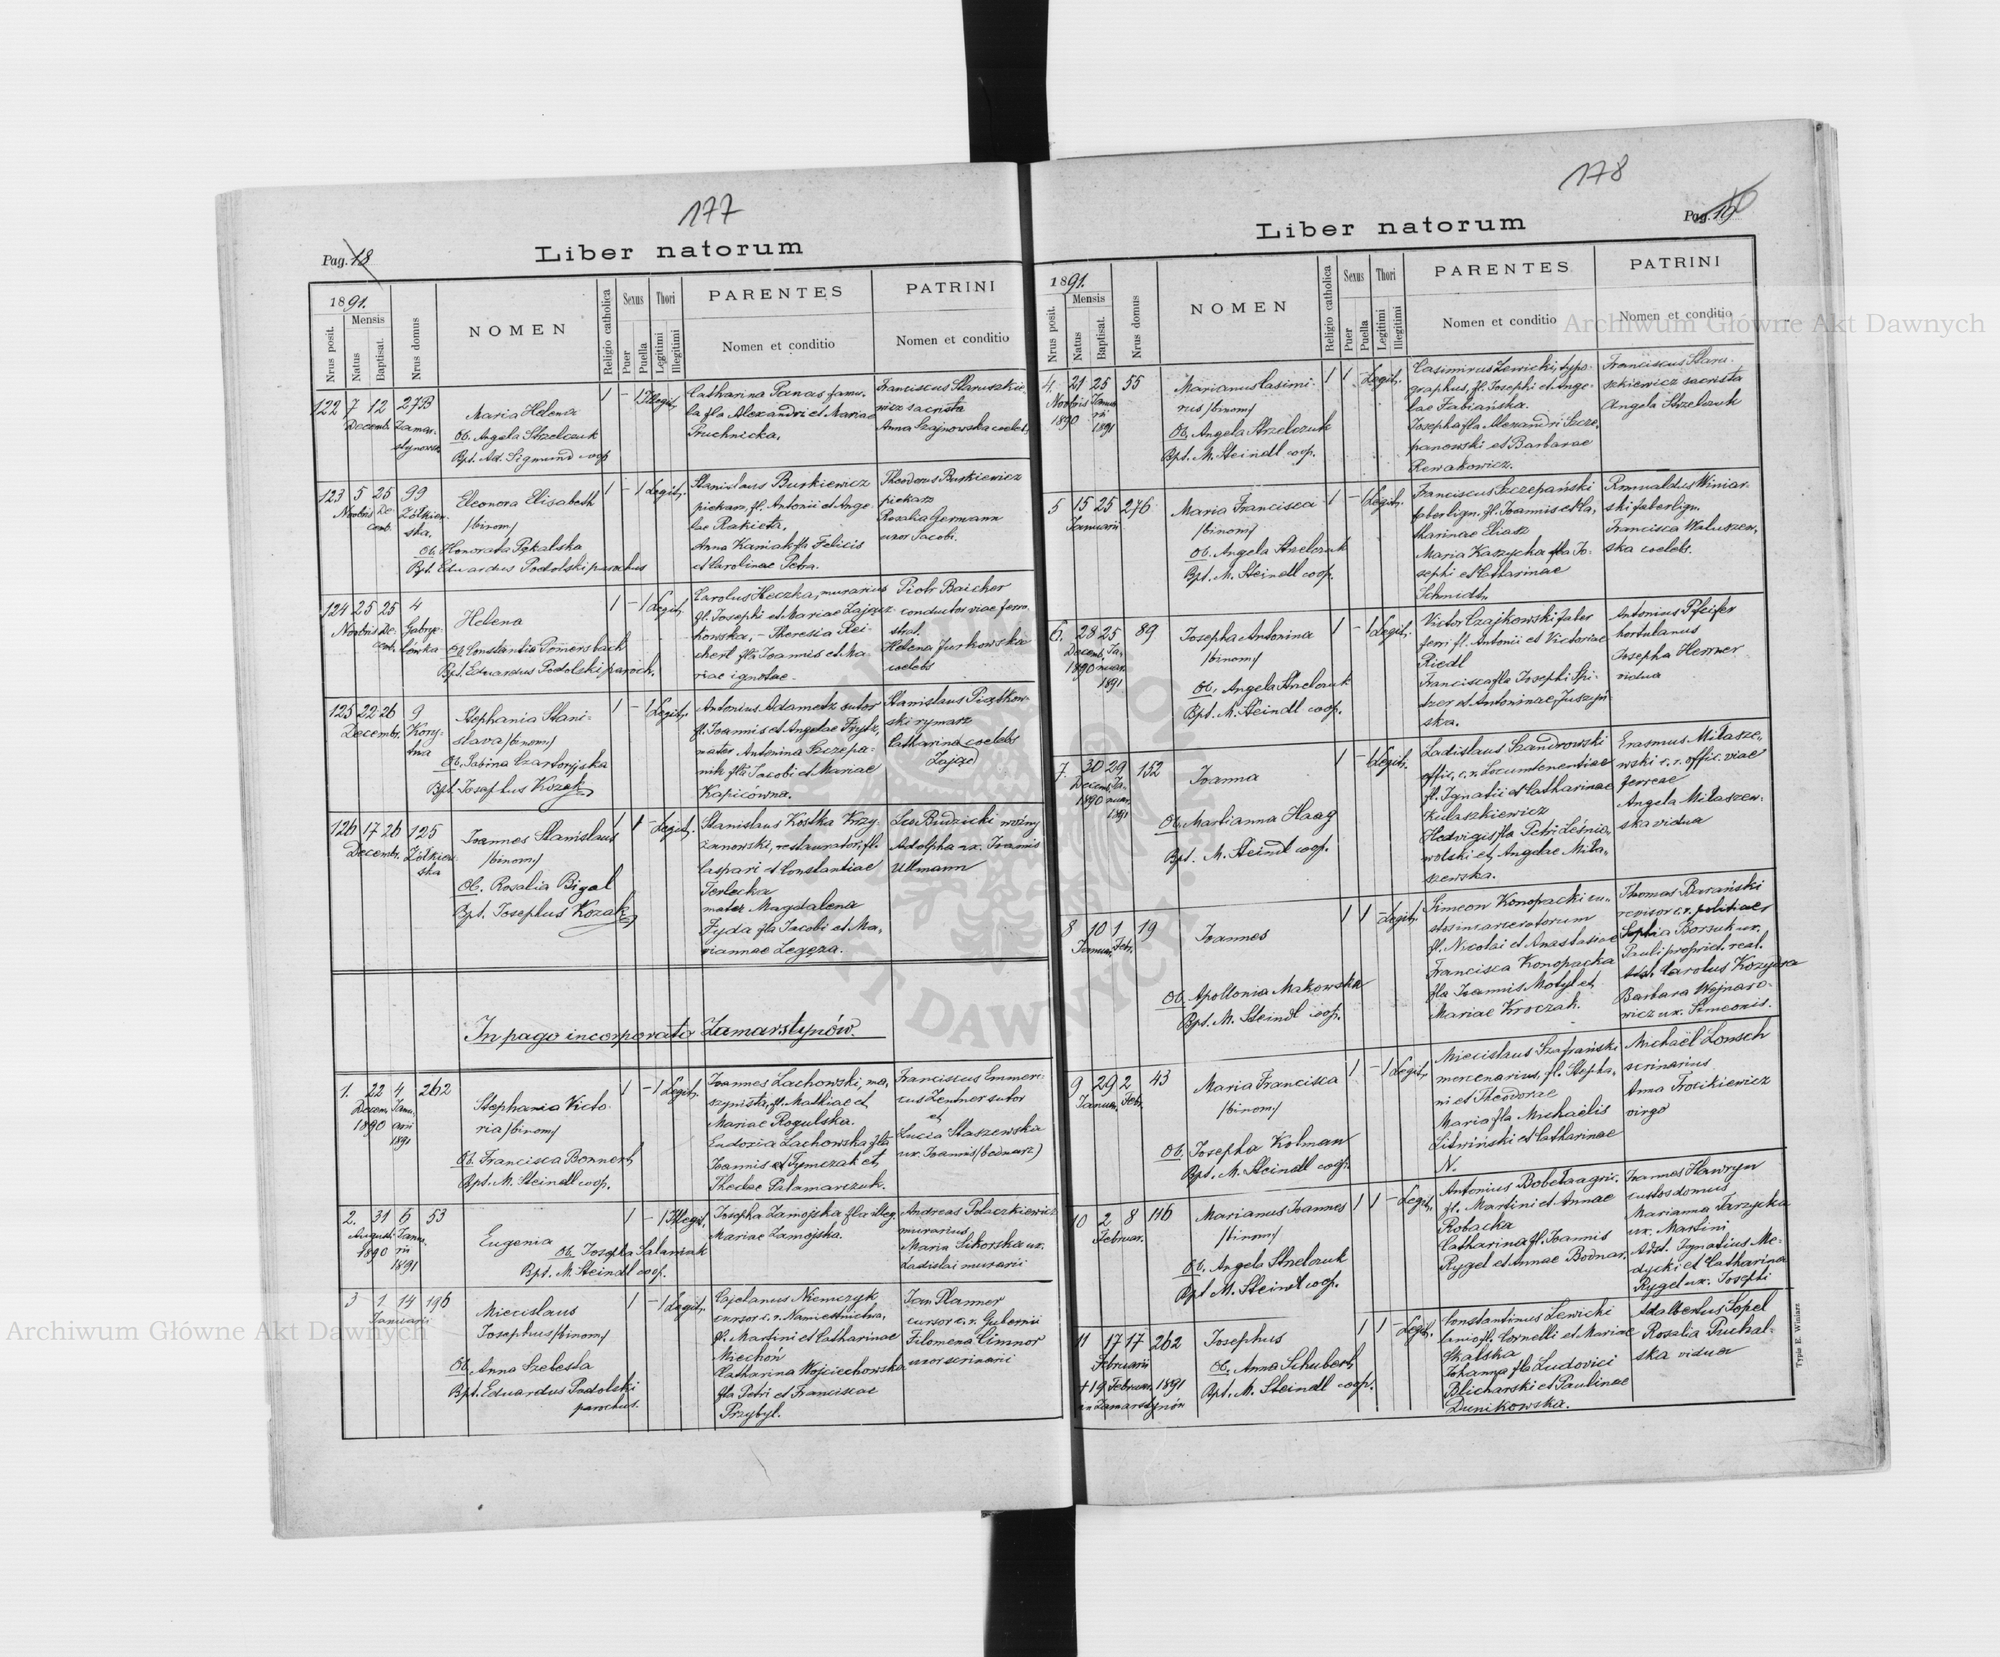 177
Pag. 18
Liber natorum
1891.
Nrus posit.
Mensis
Natus
Baptisat.
Nrus domus
NOMEN
Religio catholica
Sexus
Puer
Puella
Thori
Legitimi
Illegitimi
PARENTES
Nomen et conditio
PATRINI
Nomen et conditio
122 7 12 27B
Decemb. Zamar-
stynowska
Maria Helena
Ob. Angela Strzelczuk
Bpt. Ad. Sigmund coop
1 - 1 Illegit.
Catharina Panas famu-
la fla Alexandri et Mariae
Pruchnicka.
Franciscus Staruszkie-
wicz sacrista
Anna Szajnowska coelebs
123 5 25 99
Novbris De- Żółkiew-
cemb. ska.
Eleonora Elisabeth
/binom/
Ob. Honorata Pękalska
Bpt. Eduardus Podolski parochus
1 - 1 Legit.
Stanislaus Burkiewicz
piekarz, fl. Antonii et Ange-
lae Rakieta,
Anna Kaniak fla Felicis
et Carolinae Petra.
Theodorus Burkiewicz
piekarz
Rosalia Germann
uxor Jacobi.
124 25 25 4
Novbris De-
cemb.
Helena
Ob. Constantia Pomersbach
Bpt. Eduardus Podolski paroch.
1 - 1 Legit.
Carolus Heczka, murarius
fl. Josephi et Mariae Zającz-
kowska, - Theresia Rei-
chert fla Joannis et Ma-
riae ignotae.
Piotr Baicher
conductor viae ferro
strat.
Helena Jurkowska
coelebs
125 22 26 9
Decembr. Kory-
tna
Stephania Stani-
slava /binom/
Ob. Sabina Czartoryjska
Bpt. Josephus Kozak
1 - 1 Legit.
Antonius Adametz sutor
fl. Joannis et Angelae Frytz,
mater Antonina Szczepa-
nik fla Jacobi et Mariae
Kapicówna.
Stanislaus Piątkow-
ski rymarz
Catharina coelebs
Zając
126 17 26 125
Decembr. Żółkiew-
ska
Joannes Stanislaus
/binom/
Ob. Rosalia Bigal
Bpt. Josephus Kozak
1 1 - Legit.
Stanislaus Kostka Krzy-
żanowski, restaurator, fl.
Caspari et Constantiae
Terlecka
mater Magdalena
Fyda fla Jacobi et Ma-
riannae Legęza.
Leo Budzicki woźny
Adolpha ux. Joannis
Ullmann
In pago incorporato Zamarstynów.
1. 22 4 262
Decem. Janu-
1890 arii
1891
Stephania Victo-
ria /binom/
Ob. Francisca Bonnert
Bpt. M. Steindl coop.
1 - 1 Legit.
Joannes Lachowski, ma-
szynista, fl. Mathiae et
Mariae Rogulska.
Eudoxia Lachowska fla
Joannis et Tymczak et
Theclae Palamarczuk.
Franciscus Emmeri-
cus Zentner sutor
et
Lucia Staszewska
ux. Joannis (bednarz)
2. 31 6 53
Augusti Janu-
1890 rii
1891
Eugenia
Ob. Josepha Salamak
Bpt. M. Steindl coop.
1 - 1 Illegit.
Josepha Zamojska fla illeg.
Mariae Zamojska.
Andreas Polaczkiewicz
murarius
Maria Sikorska ux.
Ladislai murarii
3 1. 14 196
Januarii
Miecislaus
Josephus /binom/
Ob. Anna Szelesta
Bpt. Eduardus Podolski
parochus.
1 - 1 Legit.
Cajetanus Niemczyk
cursor c. r. Namiestnictwa,
fl. Martini et Catharinae
Miechoń
Catharina Wojciechowska
fla Petri et Franciscae
Przybył.
Jan Planner
cursor c. r. Gubernii
Filomena Cimmor
uxor scrinarii
178
Pag. 19
Liber natorum
1891.
Nrus posit.
Mensis
Natus
Baptisat.
Nrus domus
NOMEN
Religio catholica
Sexus
Puer
Puella
Thori
Legitimi
Illegitimi
PARENTES
Nomen et conditio
PATRINI
Nomen et conditio
4. 21 25 55
Novbris Janua-
1890 rii
1891
Marianus Casimi-
rus /binom/
Ob. Angela Strzelczuk
Bpt. M. Steindl coop.
1 1 Legit.
Casimirus Lewicki, typo-
graphus, fl. Josephi et Ange-
lae Fabiańska.
Josepha fla Alexandri Szcze-
panowski et Barbarae
Rewakowicz.
Franciscus Stara-
szkiewicz sacrista
Angela Strzelczuk
5 15 25 276
Januarii
Maria Francisca
/binom/
Ob. Angela Strzelczuk
Bpt. M. Steindl coop.
1 - 1 Legit.
Franciscus Szczepański
faber lign. fl. Joannis et Ca-
tharinae Eliasz
Maria Kaszycka fla Jo-
sephi et Catharinae
Schmidt.
Romualdus Winiar-
ski faber lign.
Francisca Waluszew-
ska coelebs.
6. 28 25 89
Decemb. Ja-
1890 nuar.
1891
Josepha Antonina
/binom/
Ob. Angela Strzelczuk
Bpt. M. Steindl coop.
1 - 1 Legit.
Victor Czajkowski faber
ferri fl. Antonii et Victoriae
Riedl
Francisca fla Josephi Spi-
tzer et Antoninae Juszyń-
ska.
Antonius Pfeifer
hortulanus
Josepha Hemer
vidua
7. 30 29 152
Decemb. Ja-
1890 nuar.
1891
Joanna
Ob. Marianna Haag
Bpt. M. Steindl coop.
1 - 1 Legit.
Ladislaus Szandrowski
offic. c. r. Locumtenentiae
fl. Ignatii et Catharinae
Kulaszkiewicz
Hedvigis fla Petri Leśnio-
wolski et Angelae Miła-
szewska.
Erasmus Miłasze-
wski c. r. offic. viae
ferreae
Angela Miłaszew-
ska vidua
8 10 1 19
Januar. Febr.
Joannes
Ob. Apollonia Makowska
Bpt. M. Steindl coop.
1 1 - Legit.
Simeon Konopacki cu-
stos incarceratorum
fl. Nicolai et Anastasiae
Francisca Konopacka
fla Joannis Motyl et
Mariae Kroczak.
Thomas Barański
revisor c. r. politiae
Sophia Borsuk ux.
Pauli propriet. real.
Adst. Carolus Kozyrsa
Barbara Wojnaro-
wicz ux. Simeonis.
9 29 2 43
Januar. Febr.
Maria Francisca
/binom/
Ob. Josepha Kolman
Bpt. M. Steindl coop.
1 - 1 Legit.
Miecislaus Szafrański
mercenarius, fl. Stepha-
ni et Theodorae
Maria fla Michaëlis
Litwiński et Catharinae
N.
Michaël Lonsch
scrinarius
Anna Trocikiewicz
virgo
10 2 8 116
Februar.
Marianus Joannes
/binom/
Ob. Angela Strzelczuk
Bpt. M. Steindl coop.
1 1 - Legit.
Antonius Bobela agric.
fl. Martini et Annae
Robacka
Catharina fl. Joannis
Rygel et Annae Bodnar.
Joannes Hawryn
custos domus
Marianna Tarzycka
ux. Martini
Adst. Ignatius Me-
dycki et Catharina
Rygel ux. Josephi
11 17 17 262
Februarii
† 19 Februar. 1891
in Zamarstynów
Josephus
Ob. Anna Schubert
Bpt. M. Steindl coop.
1 1 - Legit.
Constantinus Lewicki
lanio fl. Cornelli et Mariae
Skalska
Johanna fla Ludovici
Blicharski et Paulinae
Dunikowska.
Adalbertus Sopel
Rosalia Puchal-
ska vidua
Typis E. Winiarz
Archiwum Główne Akt Dawnych
Archiwum Główne Akt Dawnych